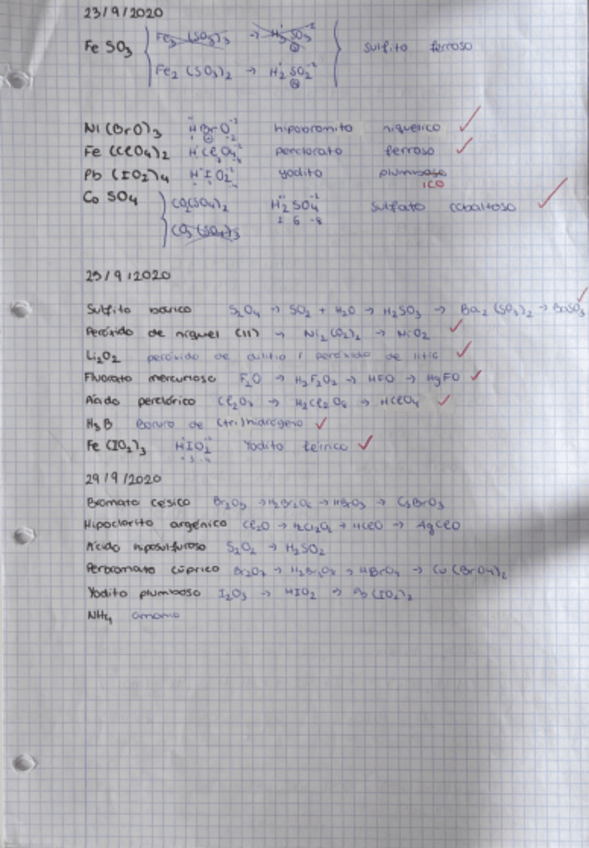 23/9/2020
Fe SO₃ Fe₃ (SO₃)₃ → H₂ SO₃⁻² Sulfito ferroso
Fe₂ (SO₃)₂ → H₂⁺ SO₂⁻²
Ni (BrO)₃ H BrO⁻² hipobromito niquelico ✓
Fe (ClO₄)₂ H Cl O₄⁻² perclorato ferroso ✓
Pb (IO₂)₄ H I O₂⁻² yodito plumboso
ico
Co SO₄ Co₂(SO₄)₂ H₂ SO₄⁻² sulfato cobaltoso ✓
2 6 -8
Co₃ (SO₄)₃
25/9/2020
Sulfito barico S₂O₄ → SO₂ + H₂O → H₂SO₃ → Ba₂ (SO₃)₂ → BaSO₃ ✓
Peróxido de niquel (II) → Ni₂ (O₂)₂ → NiO₂ ✓
Li₂O₂ peróxido de dilitio / peróxido de litio ✓
Fluorato mercurioso F₂O → H₂F₂O₂ → HFO → HgFO ✓
Ácido perclórico Cl₂O₇ → H₂Cl₂O₈ → HClO₄ ✓
H₃B Boruro de (tri)hidrógeno ✓
Fe (IO₂)₃ HIO₂⁻² Yodito férrico ✓
29/9/2020
Bromato césico Br₂O₅ → H₂Br₂O₆ → HBrO₃ → CsBrO₃
Hipoclorito argénico Cl₂O → H₂Cl₂O₂ → HClO → AgClO
Ácido hiposulfuroso S₂O₂ → H₂SO₂
Perbromato cúprico Br₂O₇ → H₂Br₂O₈ → HBrO₄ → Cu (BrO₄)₂
Yodito plumboso I₂O₃ → HIO₂ → Pb (IO₂)₂
NH₄ amonio